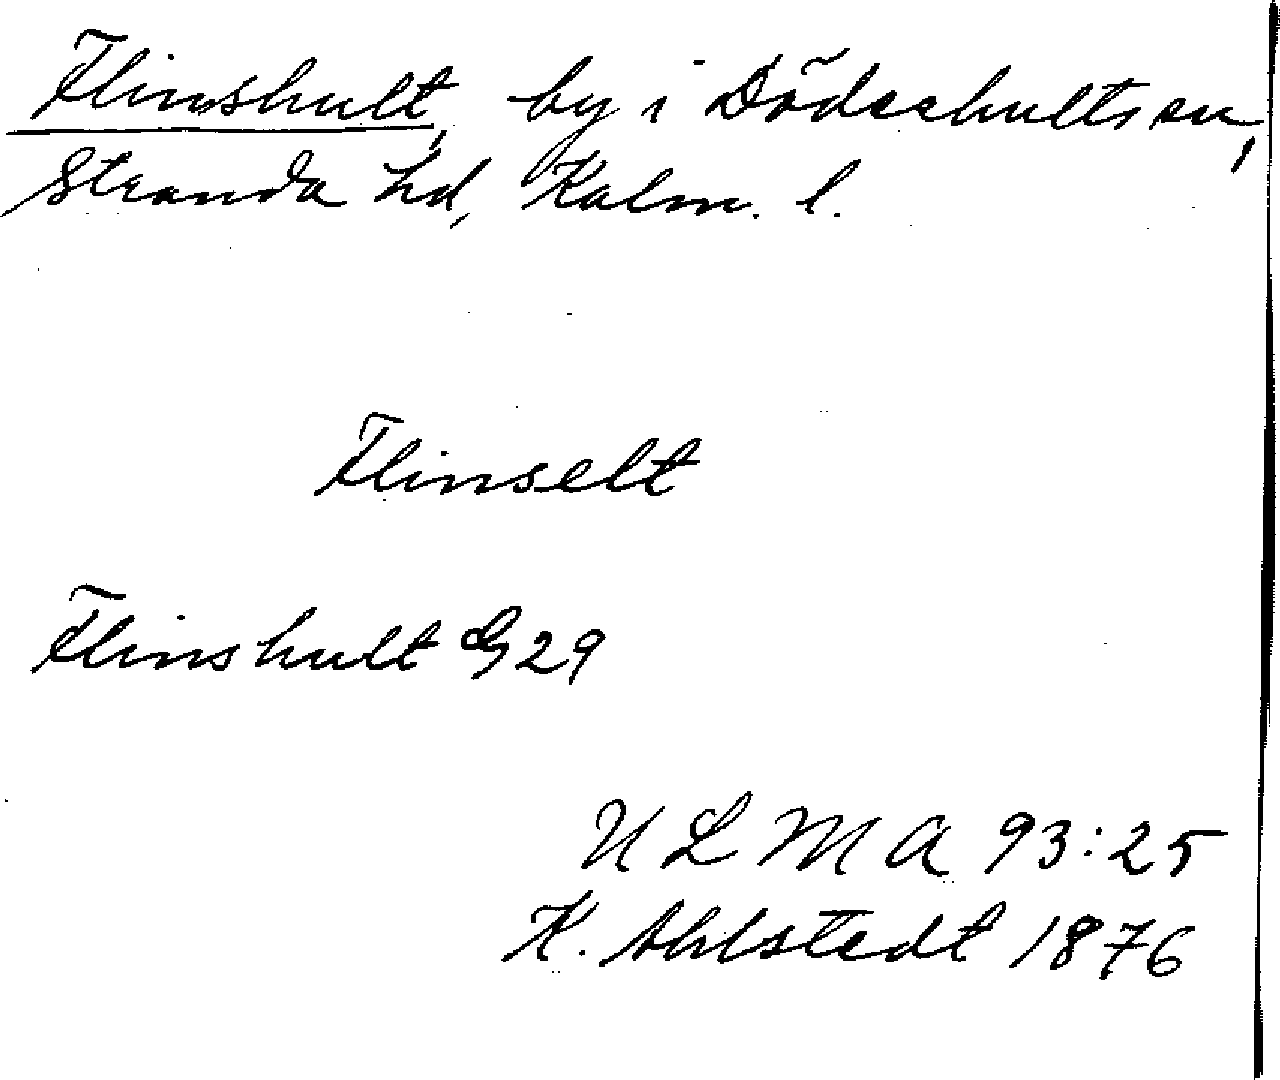 Flinshult, by i Döderhults sn,
Stranda hd, Kalm. l.
Flinselt
Flinshult G 29
ULMA 93:25
K. Ahlstedt 1876